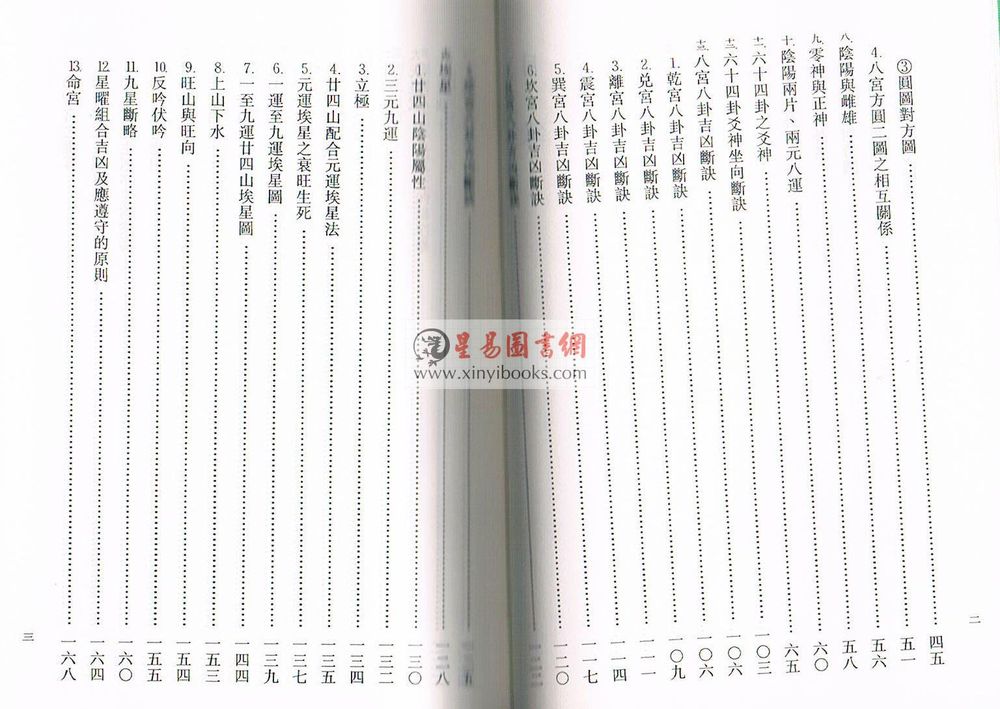 四五
③圓圖對方圖……五一
4.八宮方圓二圖之相互關係……五六
八、陰陽與雌雄……五八
九、零神與正神……六〇
十、陰陽兩片、兩元八運……六五
十一、六十四卦之爻神……一〇三
十二、六十四卦爻神坐向斷訣……一〇六
十三、八宮八卦吉凶斷訣……一〇六
1.乾宮八卦吉凶斷訣……一〇九
2.兌宮八卦吉凶斷訣……一一一
3.離宮八卦吉凶斷訣……一一四
4.震宮八卦吉凶斷訣……一一七
5.巽宮八卦吉凶斷訣……一二〇
6.坎宮八卦吉凶斷訣……
二
1.廿四山陰陽屬性……一三〇
2.三元九運……一三二
3.立極……一三四
4.廿四山配合元運埃星法……一三五
5.元運埃星之衰旺生死……一三七
6.一運至九運埃星圖……一三九
7.一至九運廿四山埃星圖……一四四
8.上山下水……一五三
9.旺山與旺向……一五四
10.反吟伏吟……一五五
11.九星斷略……一六〇
12.星曜組合吉凶及應遵守的原則……一六四
13.命宮……一六八
三
星易圖書網
www.xinyibooks.com